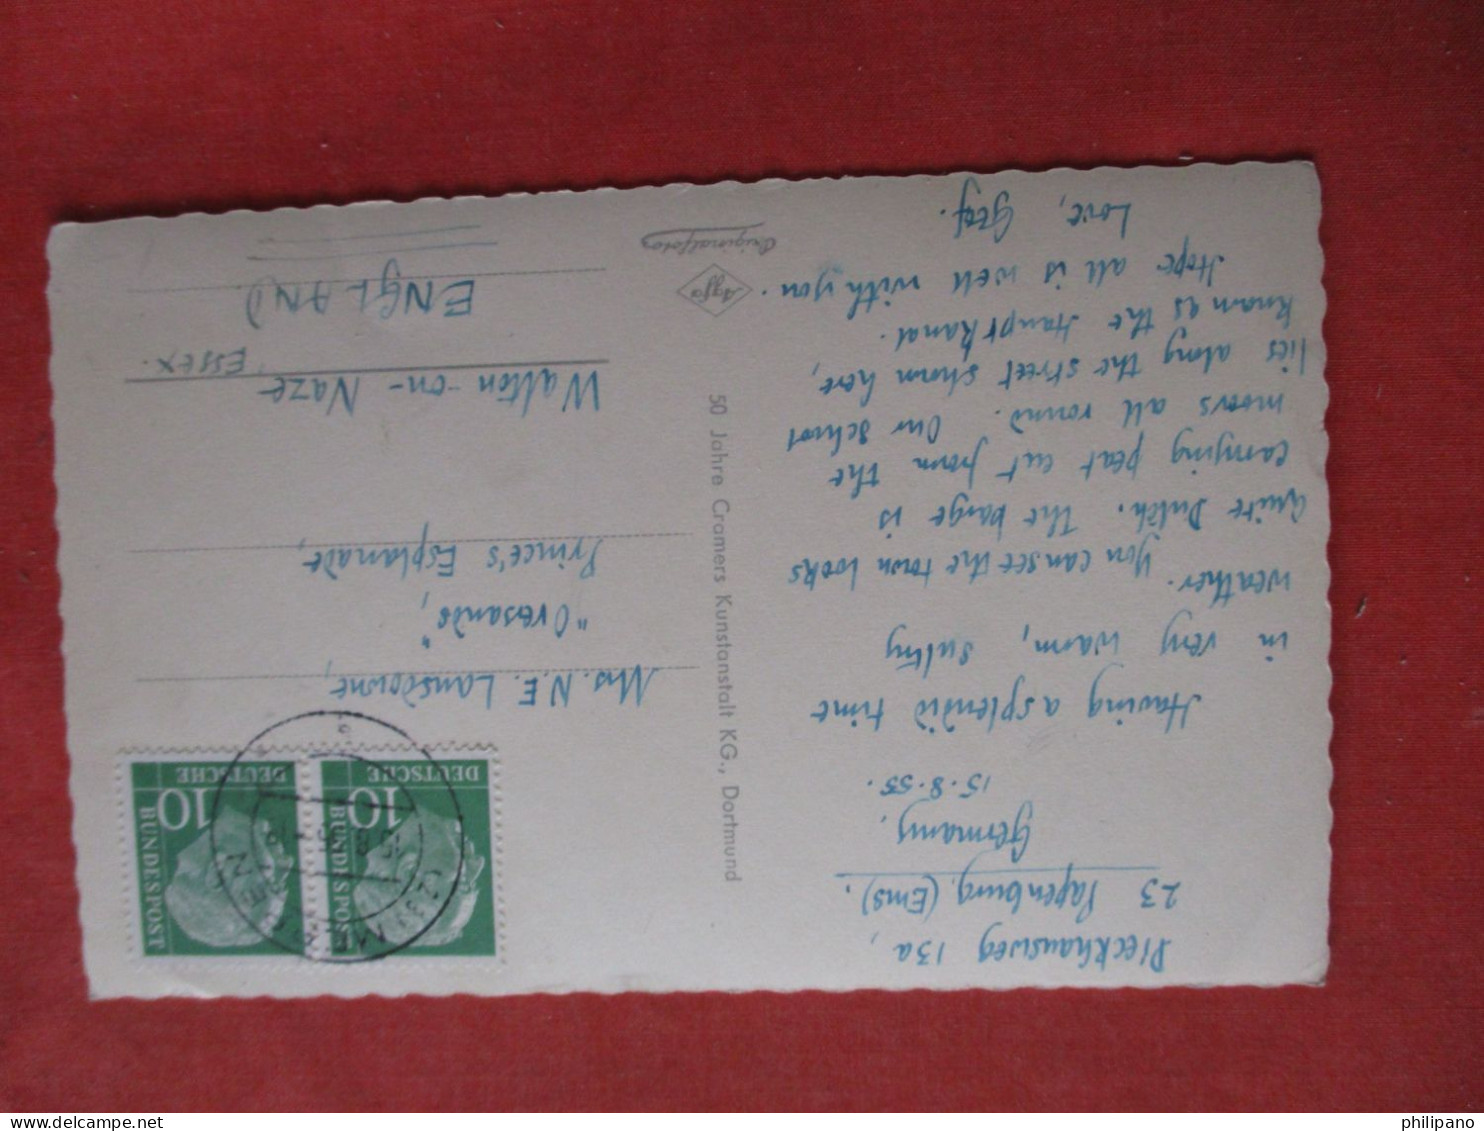 Pleckhausweg 13a,
23 Papenburg, (Ems).
Germany.
15.8.55.
Having a splendid time
in very warm, sultry
weather. You can see the town looks
quite Dutch. The barge is
carrying peat cut from the
moors all round. Our school
lies along the street shown here,
known as the Hauptkanal.
Hope all is well with you.
Love, Geof.
50 Jahre Cramers Kunstanstalt KG., Dortmund
Agfa
Originalfoto
DEUTSCHE
BUNDESPOST
10
DEUTSCHE
BUNDESPOST
10
Mrs. N.E. Lansdowne,
"Oversands",
Prince's Esplanade,
Walton-on-Naze
Essex.
ENGLAND
philipano